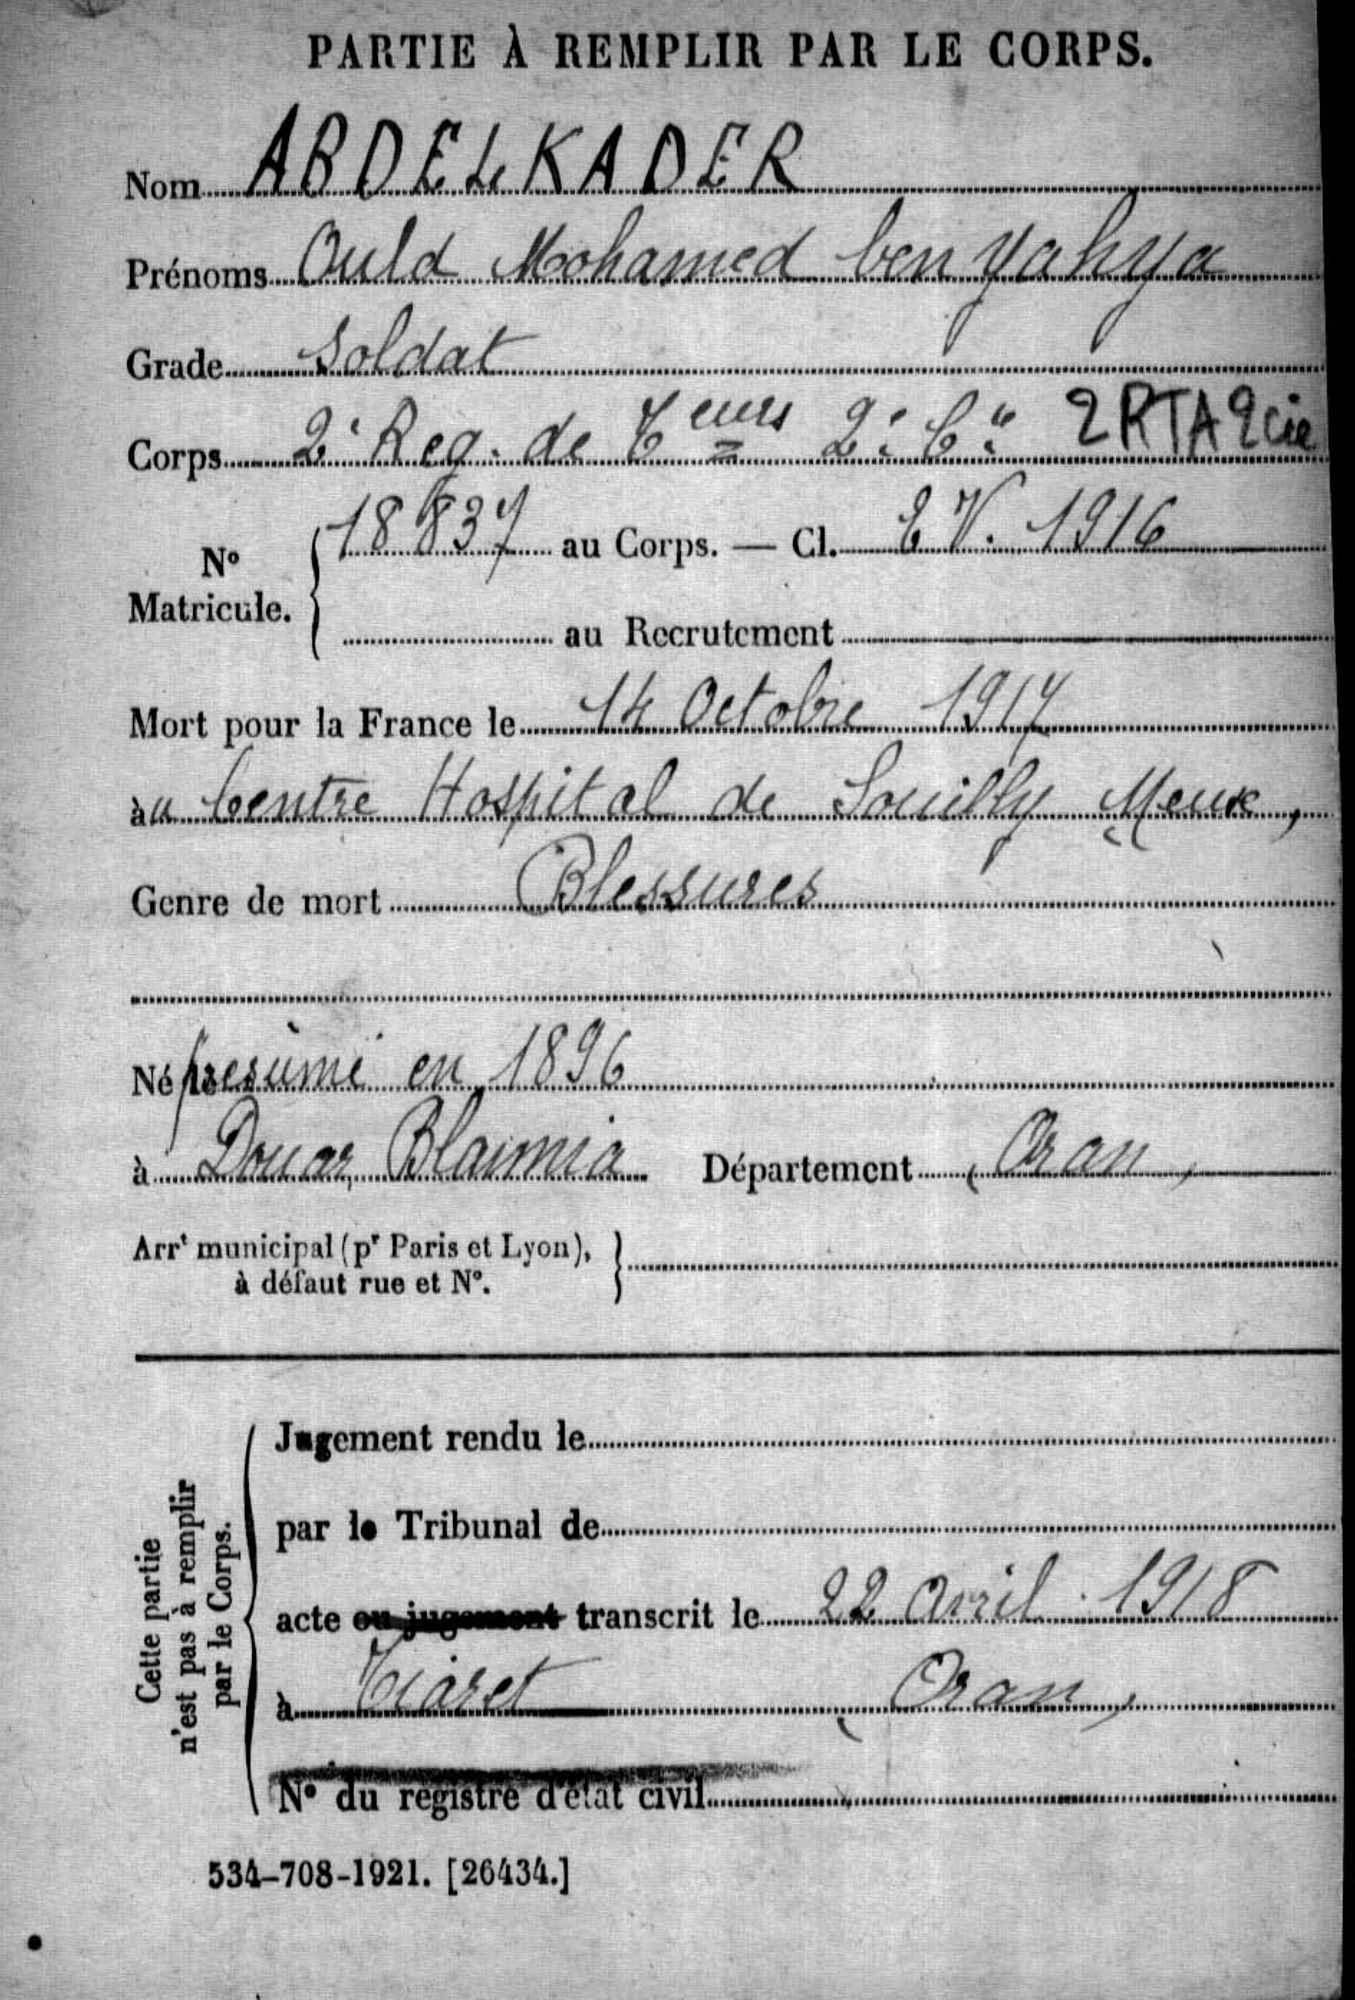 PARTIE À REMPLIR PAR LE CORPS.
Nom ABDELKADER
Prénoms Ould Mohamed ben Yahya
Grade Soldat
Corps 2e Reg. de Teurs 2e Cie 2RTA 2cie
No Matricule. { 18837 au Corps. — Cl. E V. 1916
au Recrutement
Mort pour la France le 14 Octobre 1917
au Centre Hospital de Souilly Meuse,
Genre de mort Blessures
Né le présumé en 1896
à Douar Blaimia Département (Oran)
Arrt municipal (pr Paris et Lyon),
à défaut rue et No. }
Cette partie
n'est pas à remplir
par le Corps.
Jugement rendu le
par le Tribunal de
acte ou jugement transcrit le 22 Avril 1918
à Tiaret (Oran)
No du registre d'état civil
534-708-1921. [26434.]